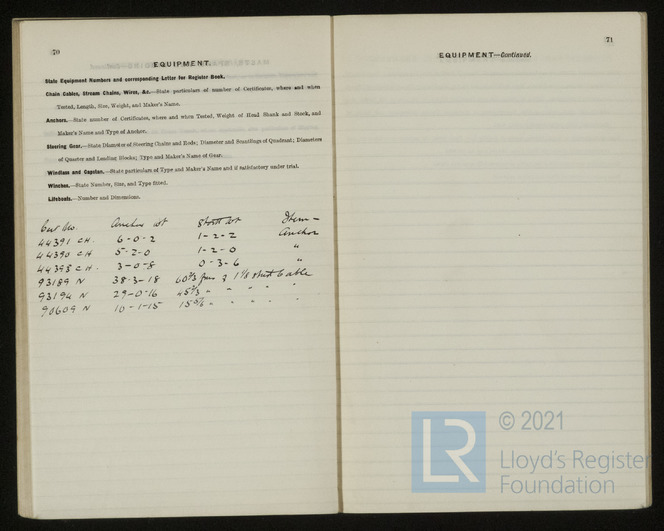 70
EQUIPMENT.
State Equipment Numbers and corresponding Letter for Register Book.
Chain Cables, Stream Chains, Wires, &c.—State particulars of number of Certificates, where and when
Tested, Length, Size, Weight, and Maker's Name.
Anchors.—State number of Certificates, where and when Tested, Weight of Head Shank and Stock, and
Maker's Name and Type of Anchor.
Steering Gear.—State Diameter of Steering Chains and Rods; Diameter and Scantlings of Quadrant; Diameters
of Quarter and Leading Blocks; Type and Maker's Name of Gear.
Windlass and Capstan.—State particulars of Type and Maker's Name and if satisfactory under trial.
Winches.—State Number, Size, and Type fitted.
Lifeboats.—Number and Dimensions.
Cert No. Anchor wt Stock wt Item -
44391 CH. 6-0-2 1-2-2 Anchor
44390 CH 5-2-0 1-2-0 "
44393 CH. 3-0-8 0-3-6 "
93189 N 38-3-18 60 2/3 of 1 1/8 Cable
93194 N 29-0-16 45 2/3 " " " " "
90609 N 10-1-15 15 " " " "
71
EQUIPMENT—Continued.
LR
© 2021
Lloyd's Register
Foundation